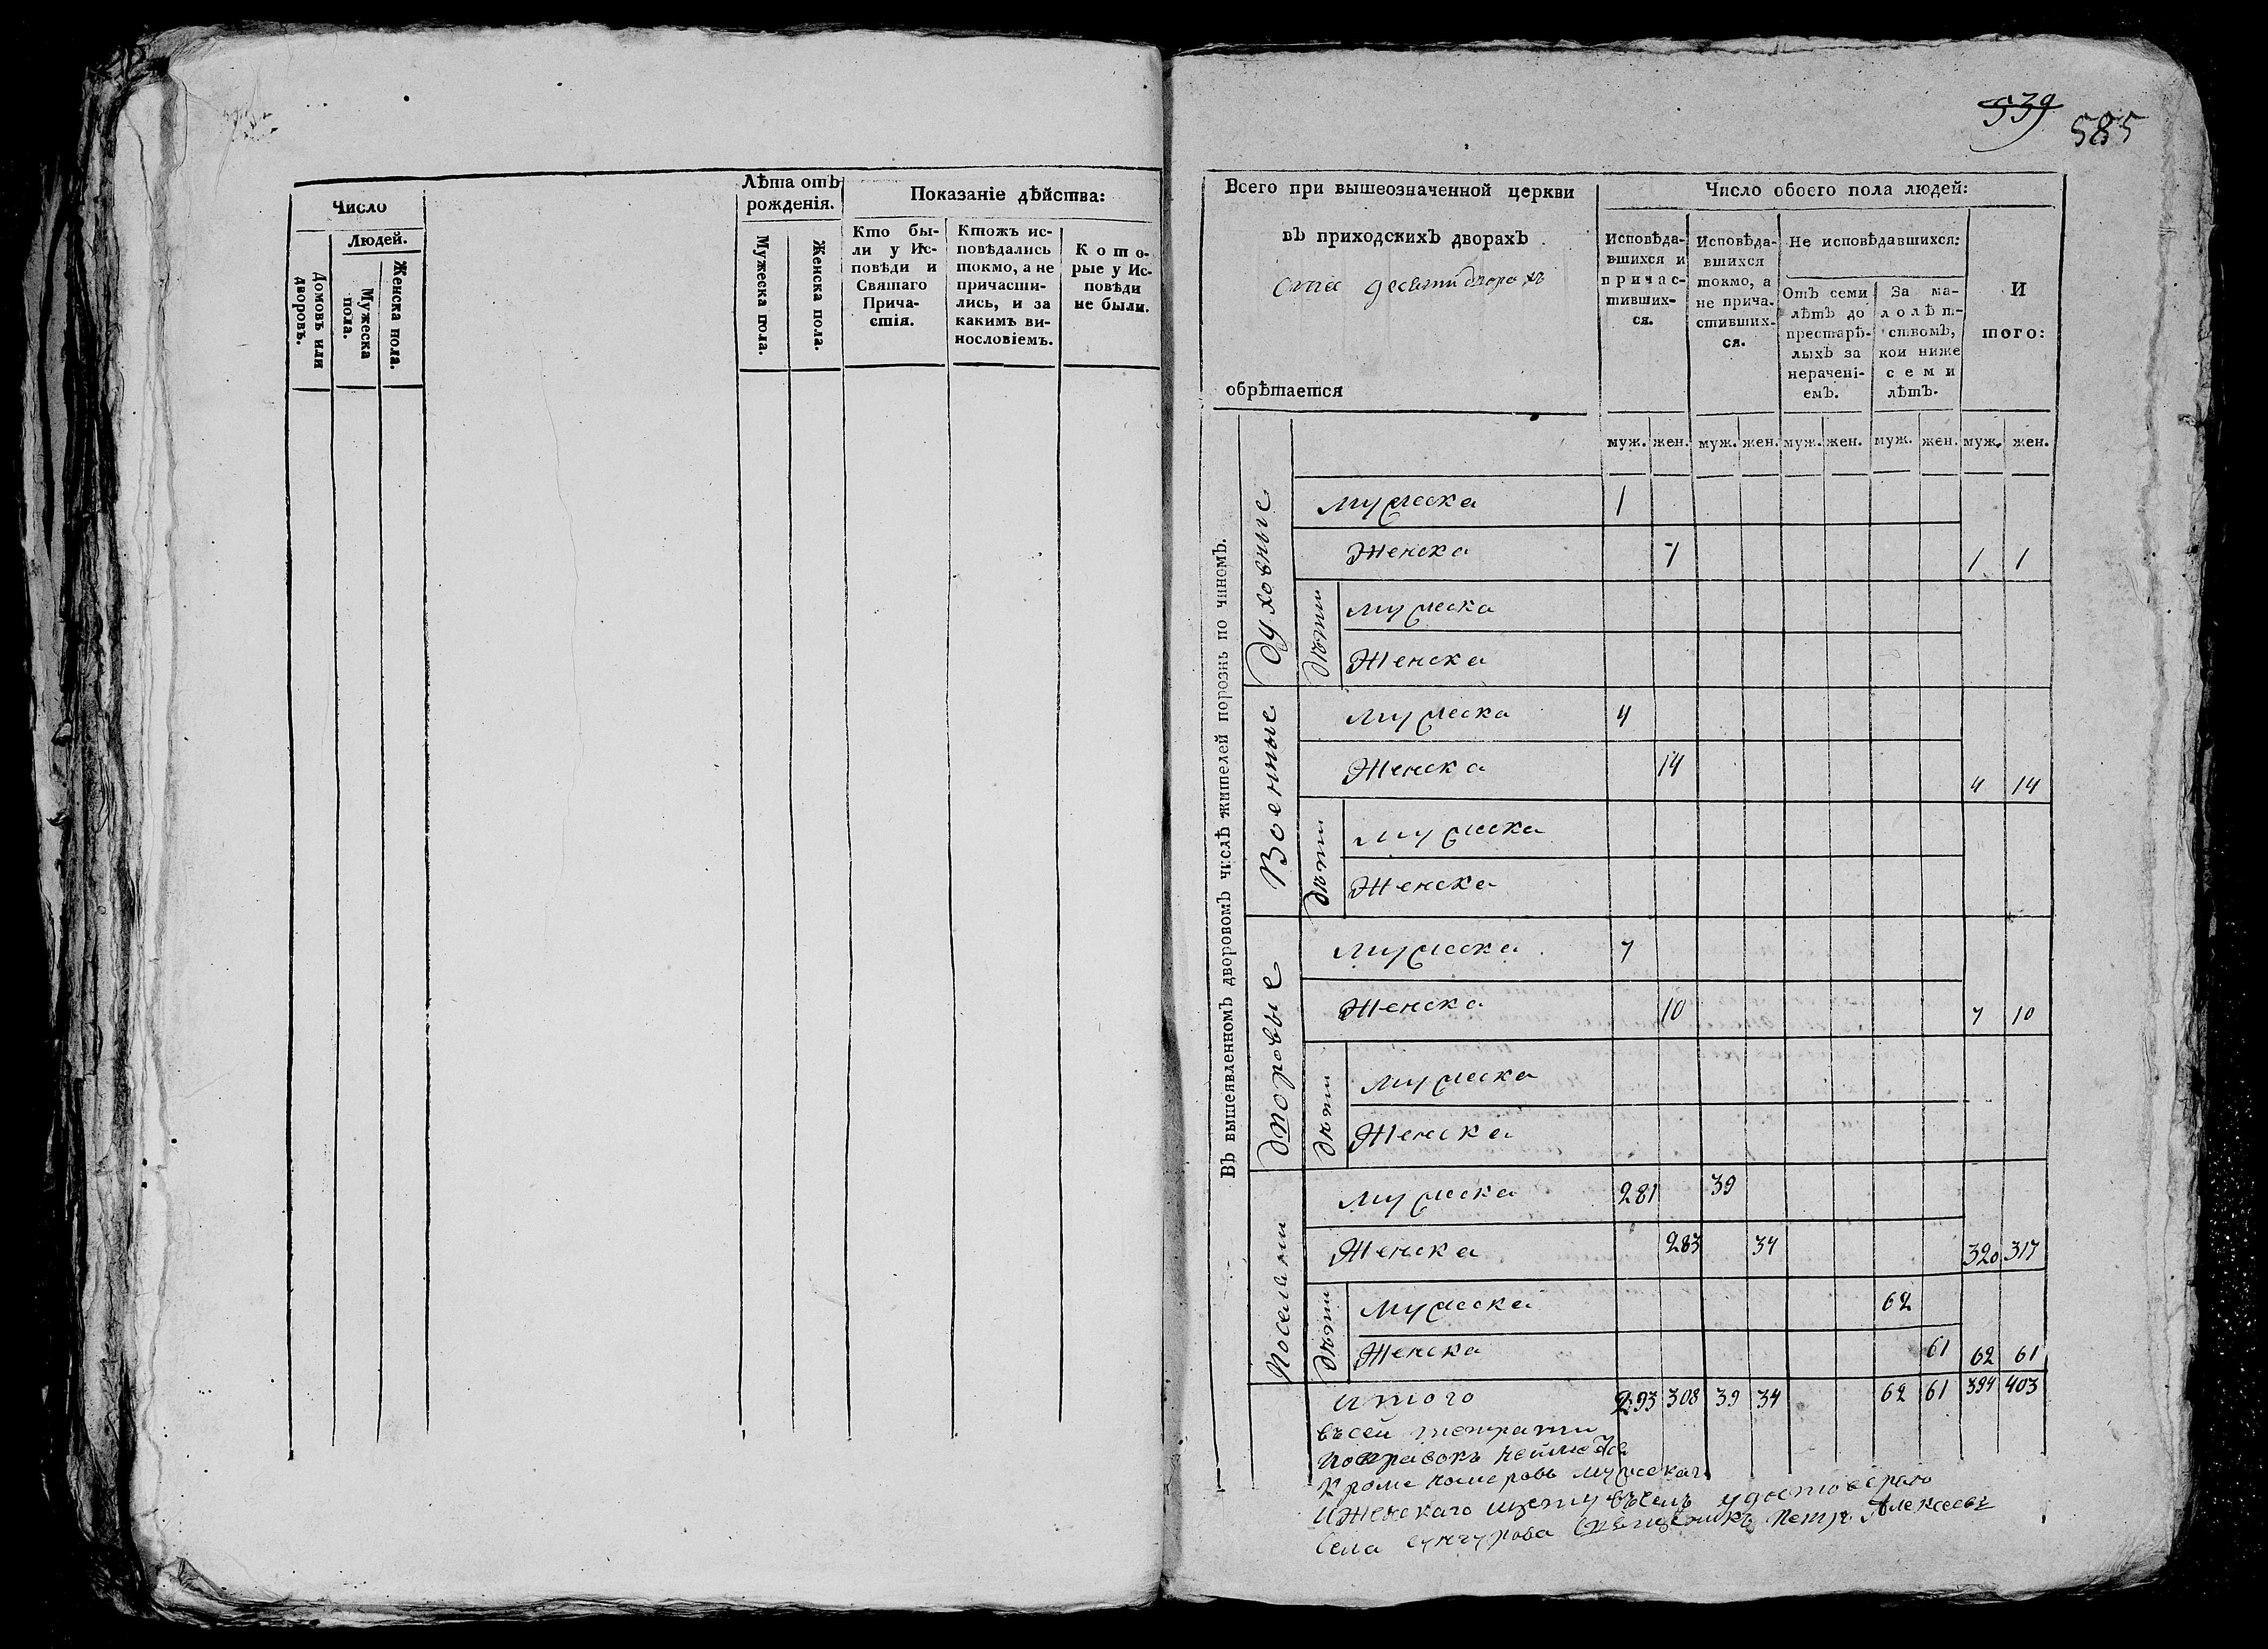 Число
Людей.
Домовъ или дворовъ.
Мужеска пола.
Женска пола.
Лѣта отъ
рожденія.
Мужеска пола.
Женска пола.
Показаніе дѣйства:
Кто бы-
ли у Ис-
повѣди и
Святаго
Прича-
стія.
Ктожъ ис-
повѣдались
токмо, а не
причасти-
лись, и за
какимъ ви-
нословіемъ.
Кото-
рые у Ис-
повѣди
не были.
539
585
Всего при вышеозначенной церкви
въ приходскихъ дворахъ
сте десяти дворахъ
обрѣтается
Число обоего пола людей:
Исповѣда-
вшихся и
причас-
тивших-
ся.
Исповѣда-
вшихся
токмо, а
не прича-
стивших-
ся.
Не исповѣдавшихся:
Отъ семи
лѣтъ до
престарѣ-
лыхъ за
нерачені-
емъ.
За ма-
лолѣт-
ствомъ,
кои ниже
семи
лѣтъ.
И
того:
муж. жен. муж. жен. муж. жен. муж. жен. муж. жен.
Въ вышеявленномъ дворовомъ числѣ жителей порознь по чиномъ.
Духовные
мужеска 1
Женска 1 1 1
дѣти
мужеска
Женска
Военные
мужеска 4
Женска 14 4 14
дѣти
мужеска
Женска
дворовые
мужеска 7
Женска 10 7 10
дѣти
мужеска
Женска
Поселяни
мужеска 281 39
Женска 283 34 320 317
дѣти
мужеска 62
Женска 61 62 61
итого 293 308 39 34 62 61 394 403
въсей тетрати
поправокъ
Кроме номеровъ мужескаго
иЖенскаго щету въсемъ удостоверяю
Села сунгурова Священникъ Петръ Алексеевъ